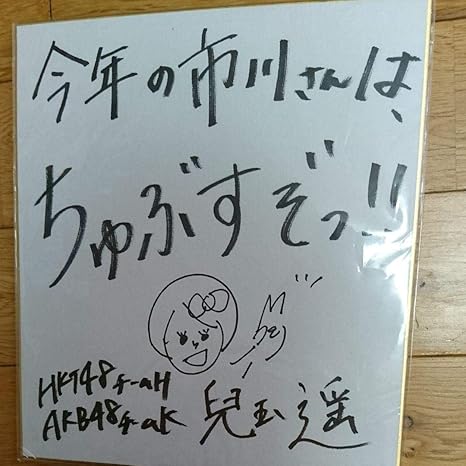 今年の市川さんは、
ちゅぶすぞっ!!
HKT48 チームH
AKB48 チームK
兒玉遥